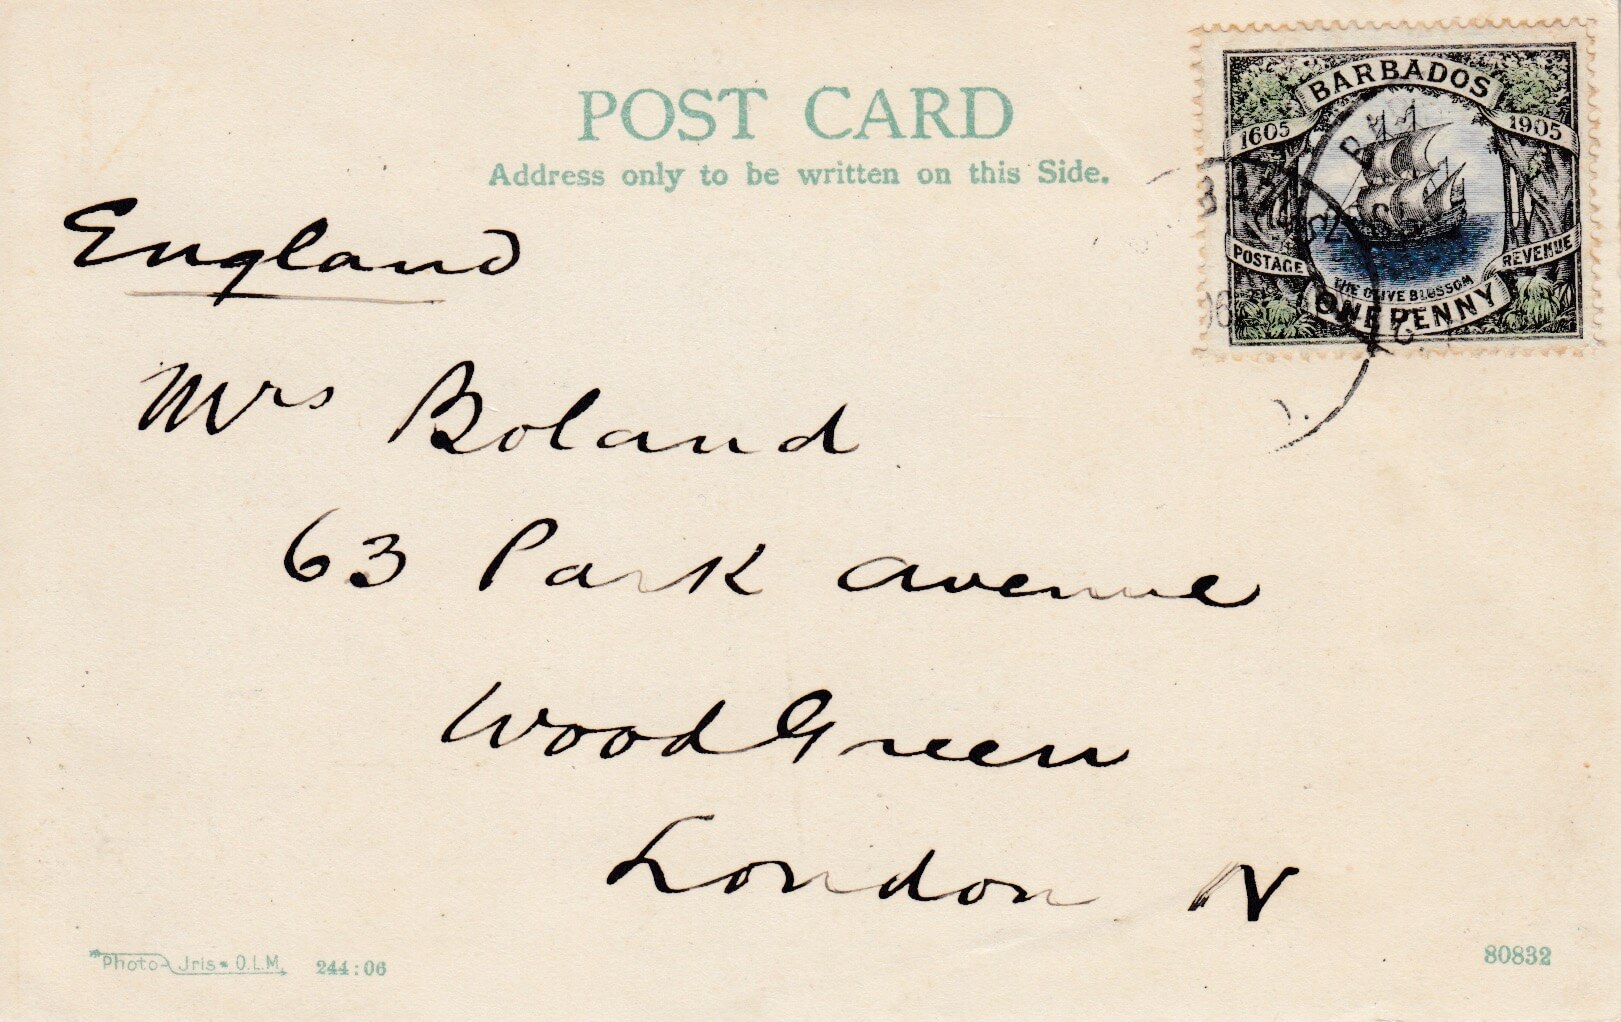 POST CARD
Address only to be written on this Side.
BARBADOS
1605 1905
POSTAGE REVENUE
THE OLIVE BLOSSOM
ONE PENNY
England
Mrs Boland
63 Park Avenue
Wood Green
London N
Photo-Jris-O.L.M. 244:06
80832